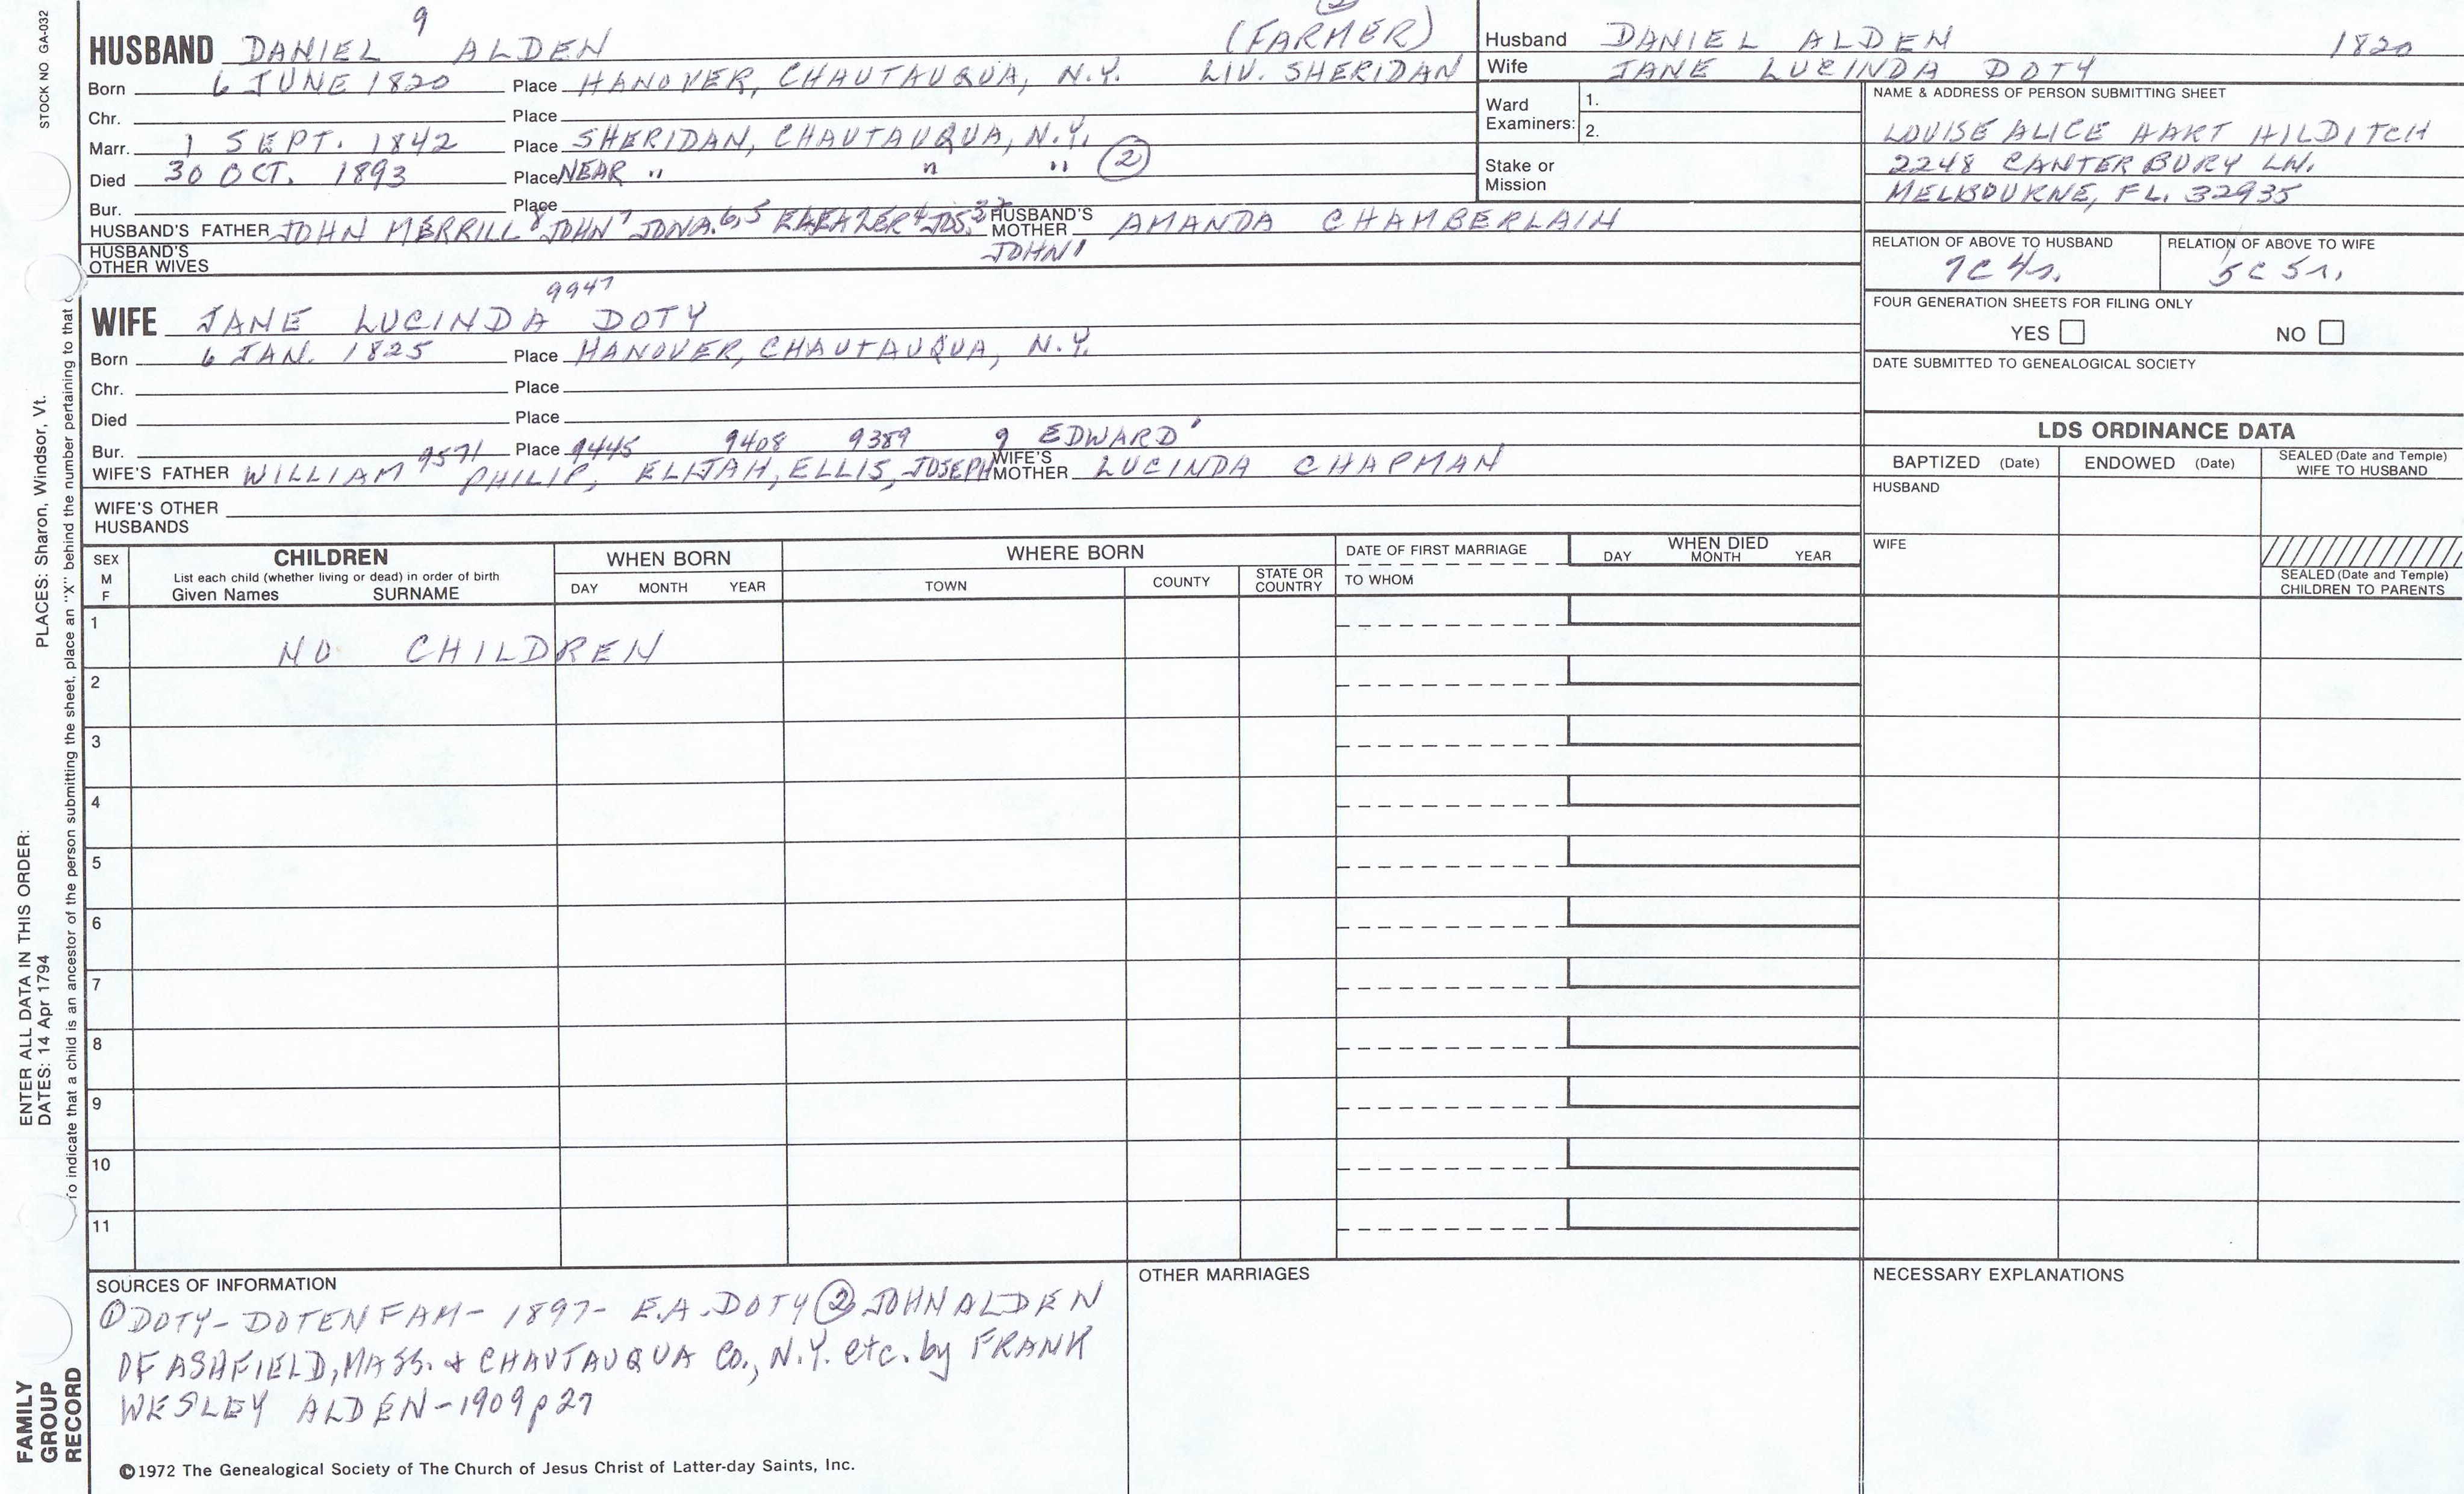 STOCK NO GA-032
9
HUSBAND DANIEL ALDEN (FARMER)
Born 6 JUNE 1820 Place HANOVER, CHAUTAUQUA, N.Y. LIV. SHERIDAN
Chr. Place
Marr. 1 SEPT. 1842 Place SHERIDAN, CHAUTAUQUA, N.Y.
Died 30 OCT. 1893 Place NEAR " " " (2)
Bur. Place
HUSBAND'S FATHER JOHN MERRILL 8 JOHN 7 JONA. 6,5 ELEAZER 4 JOS. 3 2 HUSBAND'S MOTHER AMANDA CHAMBERLAIN
JOHN 1
HUSBAND'S OTHER WIVES
9947
WIFE JANE LUCINDA DOTY
Born 6 JAN. 1825 Place HANOVER, CHAUTAUQUA, N.Y.
Chr. Place
Died Place
Bur. 9571 Place 9445 9408 9389 9 EDWARD 1
WIFE'S FATHER WILLIAM PHILIP, ELIJAH, ELLIS, JOSEPH WIFE'S MOTHER LUCINDA CHAPMAN
WIFE'S OTHER HUSBANDS
Husband DANIEL ALDEN 1820
Wife JANE LUCINDA DOTY
Ward Examiners: 1.
2.
Stake or Mission
NAME & ADDRESS OF PERSON SUBMITTING SHEET
LOUISE ALICE HART HILDITCH
2248 CANTERBURY LN.
MELBOURNE, FL. 32935
RELATION OF ABOVE TO HUSBAND RELATION OF ABOVE TO WIFE
7C 4r. 5C 5r.
FOUR GENERATION SHEETS FOR FILING ONLY
YES NO
DATE SUBMITTED TO GENEALOGICAL SOCIETY
LDS ORDINANCE DATA
BAPTIZED (Date) ENDOWED (Date) SEALED (Date and Temple) WIFE TO HUSBAND
HUSBAND
WIFE
SEALED (Date and Temple) CHILDREN TO PARENTS
SEX M F
CHILDREN
List each child (whether living or dead) in order of birth
Given Names SURNAME
WHEN BORN
DAY MONTH YEAR
WHERE BORN
TOWN COUNTY STATE OR COUNTRY
DATE OF FIRST MARRIAGE
TO WHOM
WHEN DIED
DAY MONTH YEAR
1 NO CHILDREN
2
3
4
5
6
7
8
9
10
11
SOURCES OF INFORMATION
① DOTY-DOTEN FAM- 1897- E.A. DOTY ② JOHN ALDEN
OF ASHFIELD, MASS. & CHAUTAUQUA CO., N.Y. etc. by FRANK
WESLEY ALDEN-1909 p 27
©1972 The Genealogical Society of The Church of Jesus Christ of Latter-day Saints, Inc.
OTHER MARRIAGES
NECESSARY EXPLANATIONS
PLACES: Sharon, Windsor, Vt.
ENTER ALL DATA IN THIS ORDER:
DATES: 14 Apr 1794
To indicate that a child is an ancestor of the person submitting the sheet, place an "X" behind the number pertaining to that
FAMILY
GROUP
RECORD